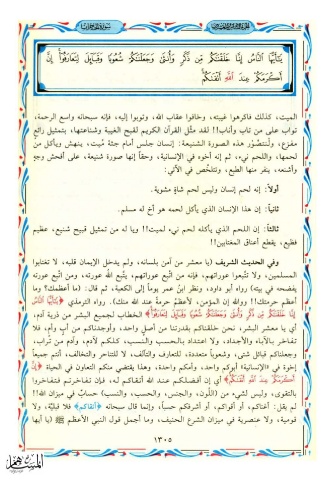 يَٰٓأَيُّهَا ٱلنَّاسُ إِنَّا خَلَقْنَٰكُم مِّن ذَكَرٍ وَأُنثَىٰ وَجَعَلْنَٰكُمْ شُعُوبًا وَقَبَآئِلَ لِتَعَارَفُوٓا۟ إِنَّ
أَكْرَمَكُمْ عِندَ ٱللَّهِ أَتْقَىٰكُمْ
الميت، كذلك فاكرهوا غيبته، وخافوا عقاب الله، وتوبوا إليه، فإنه سبحانه واسع الرحمة،
تواب على من تاب وأناب!! لقد مثّل القرآن الكريم لقبح الغيبة وشناعتها، بتمثيل رائع
مفزع، ولنتصوّر هذه الصورة الشنيعة: إنسان جلس أمام جثة ميت، ينهش ويأكل من
لحمها، واللحم نيء، ثم إنه أخوه في الإنسانية، وحقاً إنها صورة شنيعة، على أفحش وجهٍ
وأشنعه، ينفر منها الطبع، وتتلخّص في الآتي:
أولاً: إنه لحم إنسان وليس لحم شاةٍ مشوية.
ثانياً: إن هذا الإنسان الذي يأكل لحمه هو أخ له مسلم.
ثالثاً: إن اللحم الذي يأكله لحم نيء لميت!! ويا له من تمثيل قبيح شنيع، عظيم
فظيع، يقطع أعناق المغتابين!!
وفي الحديث الشريف (يا معشر من آمن بلسانه، ولم يدخل الإيمان قلبه، لا تغتابوا
المسلمين، ولا تتّبعوا عوراتهم، فإنه من اتّبع عوراتهم، يتّبع الله عورته، ومن اتّبع عورته
يفضحه في بيته) رواه أبو داود، ونظر ابنُ عمر يوماً إلى الكعبة، ثم قال: (ما أعظمك!! وما
أعظمَ حرمتك!! ووالله إن المؤمن، لأعظمُ حرمةً عند الله منك). رواه الترمذي ﴿يَٰٓأَيُّهَا ٱلنَّاسُ
إِنَّا خَلَقْنَٰكُم مِّن ذَكَرٍ وَأُنثَىٰ وَجَعَلْنَٰكُمْ شُعُوبًا وَقَبَآئِلَ لِتَعَارَفُوٓا۟﴾ الخطاب لجميع البشر من ذرية آدم،
أي يا معشر البشر، نحن خلقناكم بقدرتنا من أصلٍ واحد، وأوجدناكم من أبٍ وأم، فلا
تفاخر بالآباء والأجداد، ولا اعتداد بالحسب والنسب، كلكم لآدم، وآدم من تراب،
وجعلناكم قبائل شتى، وشعوباً متعددة، للتعارف والتآلف، لا للتناحر والتخالف، أنتم جميعاً
إخوة في الإنسانية! أبوكم واحد، وأمكم واحدة، وهذا يقتضي منكم التعاون في الحياة ﴿إِنَّ
أَكْرَمَكُمْ عِندَ ٱللَّهِ أَتْقَىٰكُمْ﴾ أي إن أفضلكم عند الله أتقاكم له، فإن تفاخرتم فتفاخروا
بالتقوى، وليس لشيء من (اللَّون، والجنس، والحسب، والنسب) حسابٌ في ميزان الله!!
لم يقل: أغناكم، أو أقواكم، أو أشرفكم حسباً، وإنما قال سبحانه ﴿أتقاكم﴾ فلا قبليَّة، ولا
قومية، ولا عنصرية في ميزان الشرع الحنيف، وما أجمل قول النبي الأعظم ﷺ (يا أيها
١٣٠٥